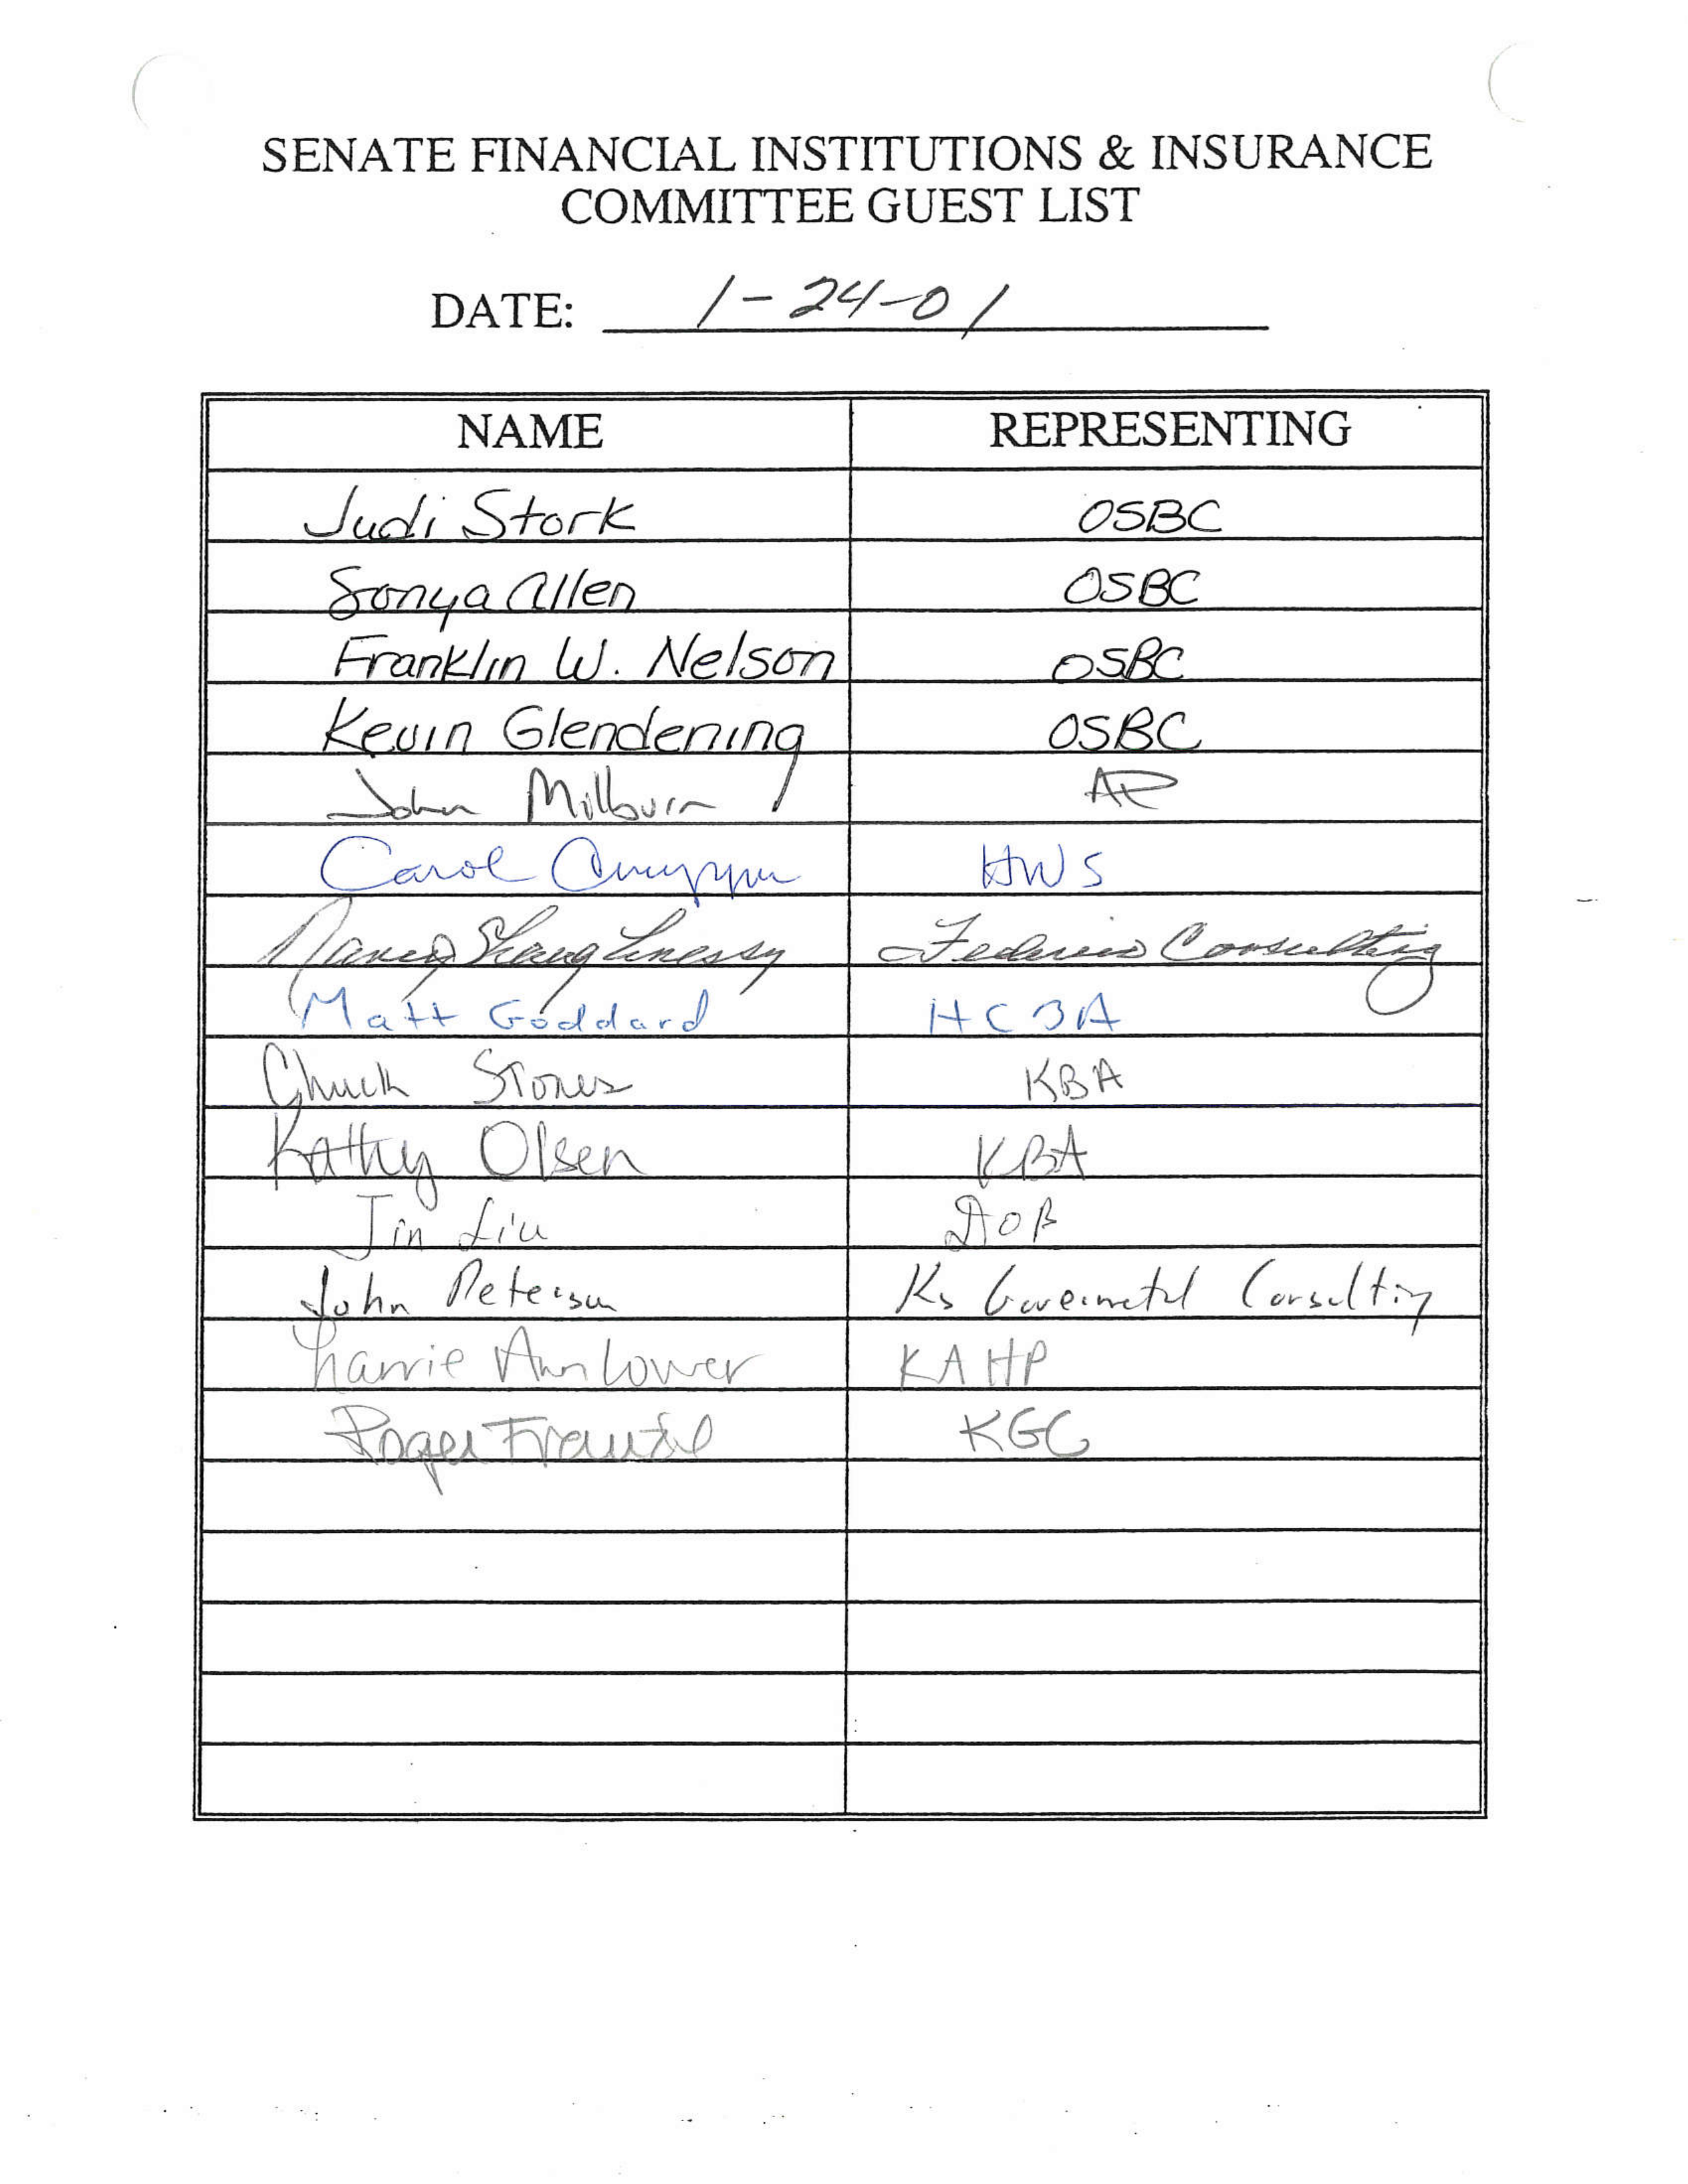 SENATE FINANCIAL INSTITUTIONS & INSURANCE
COMMITTEE GUEST LIST
DATE: 1-24-01
NAME REPRESENTING
Judi Stork OSBC
Sonya Allen OSBC
Franklin W. Nelson OSBC
Kevin Glendening OSBC
John Milburn AP
Carol HWS
Nancy Shaughnessy Federico Consulting
Matt Goddard HCBA
Chuck Stones KBA
Kathy Olsen KBA
Jin Liu DOB
John Peterson Ks Governmental Consulting
Larrie Ann Lower KAHP
Roger Franzke KGC